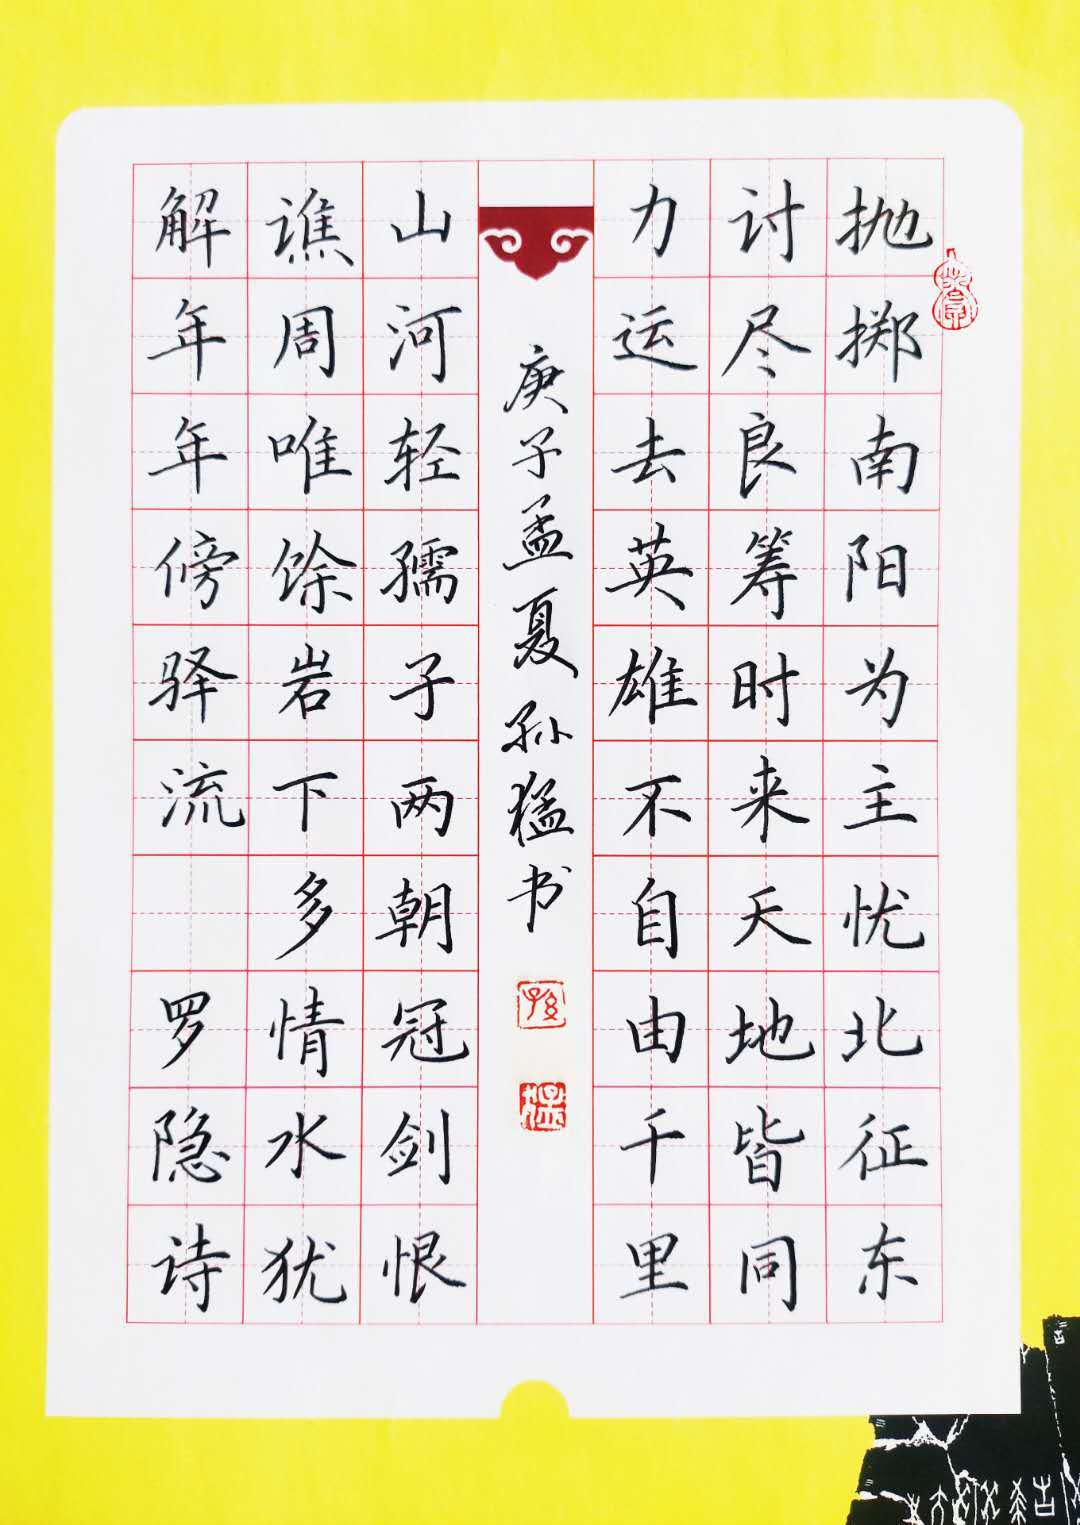 抛掷南阳为主忧北征东
讨尽良筹时来天地皆同
力运去英雄不自由千里
山河轻孺子两朝冠剑恨
谯周唯馀岩下多情水犹
解年年傍驿流 罗隐诗
庚子孟夏孙猛书